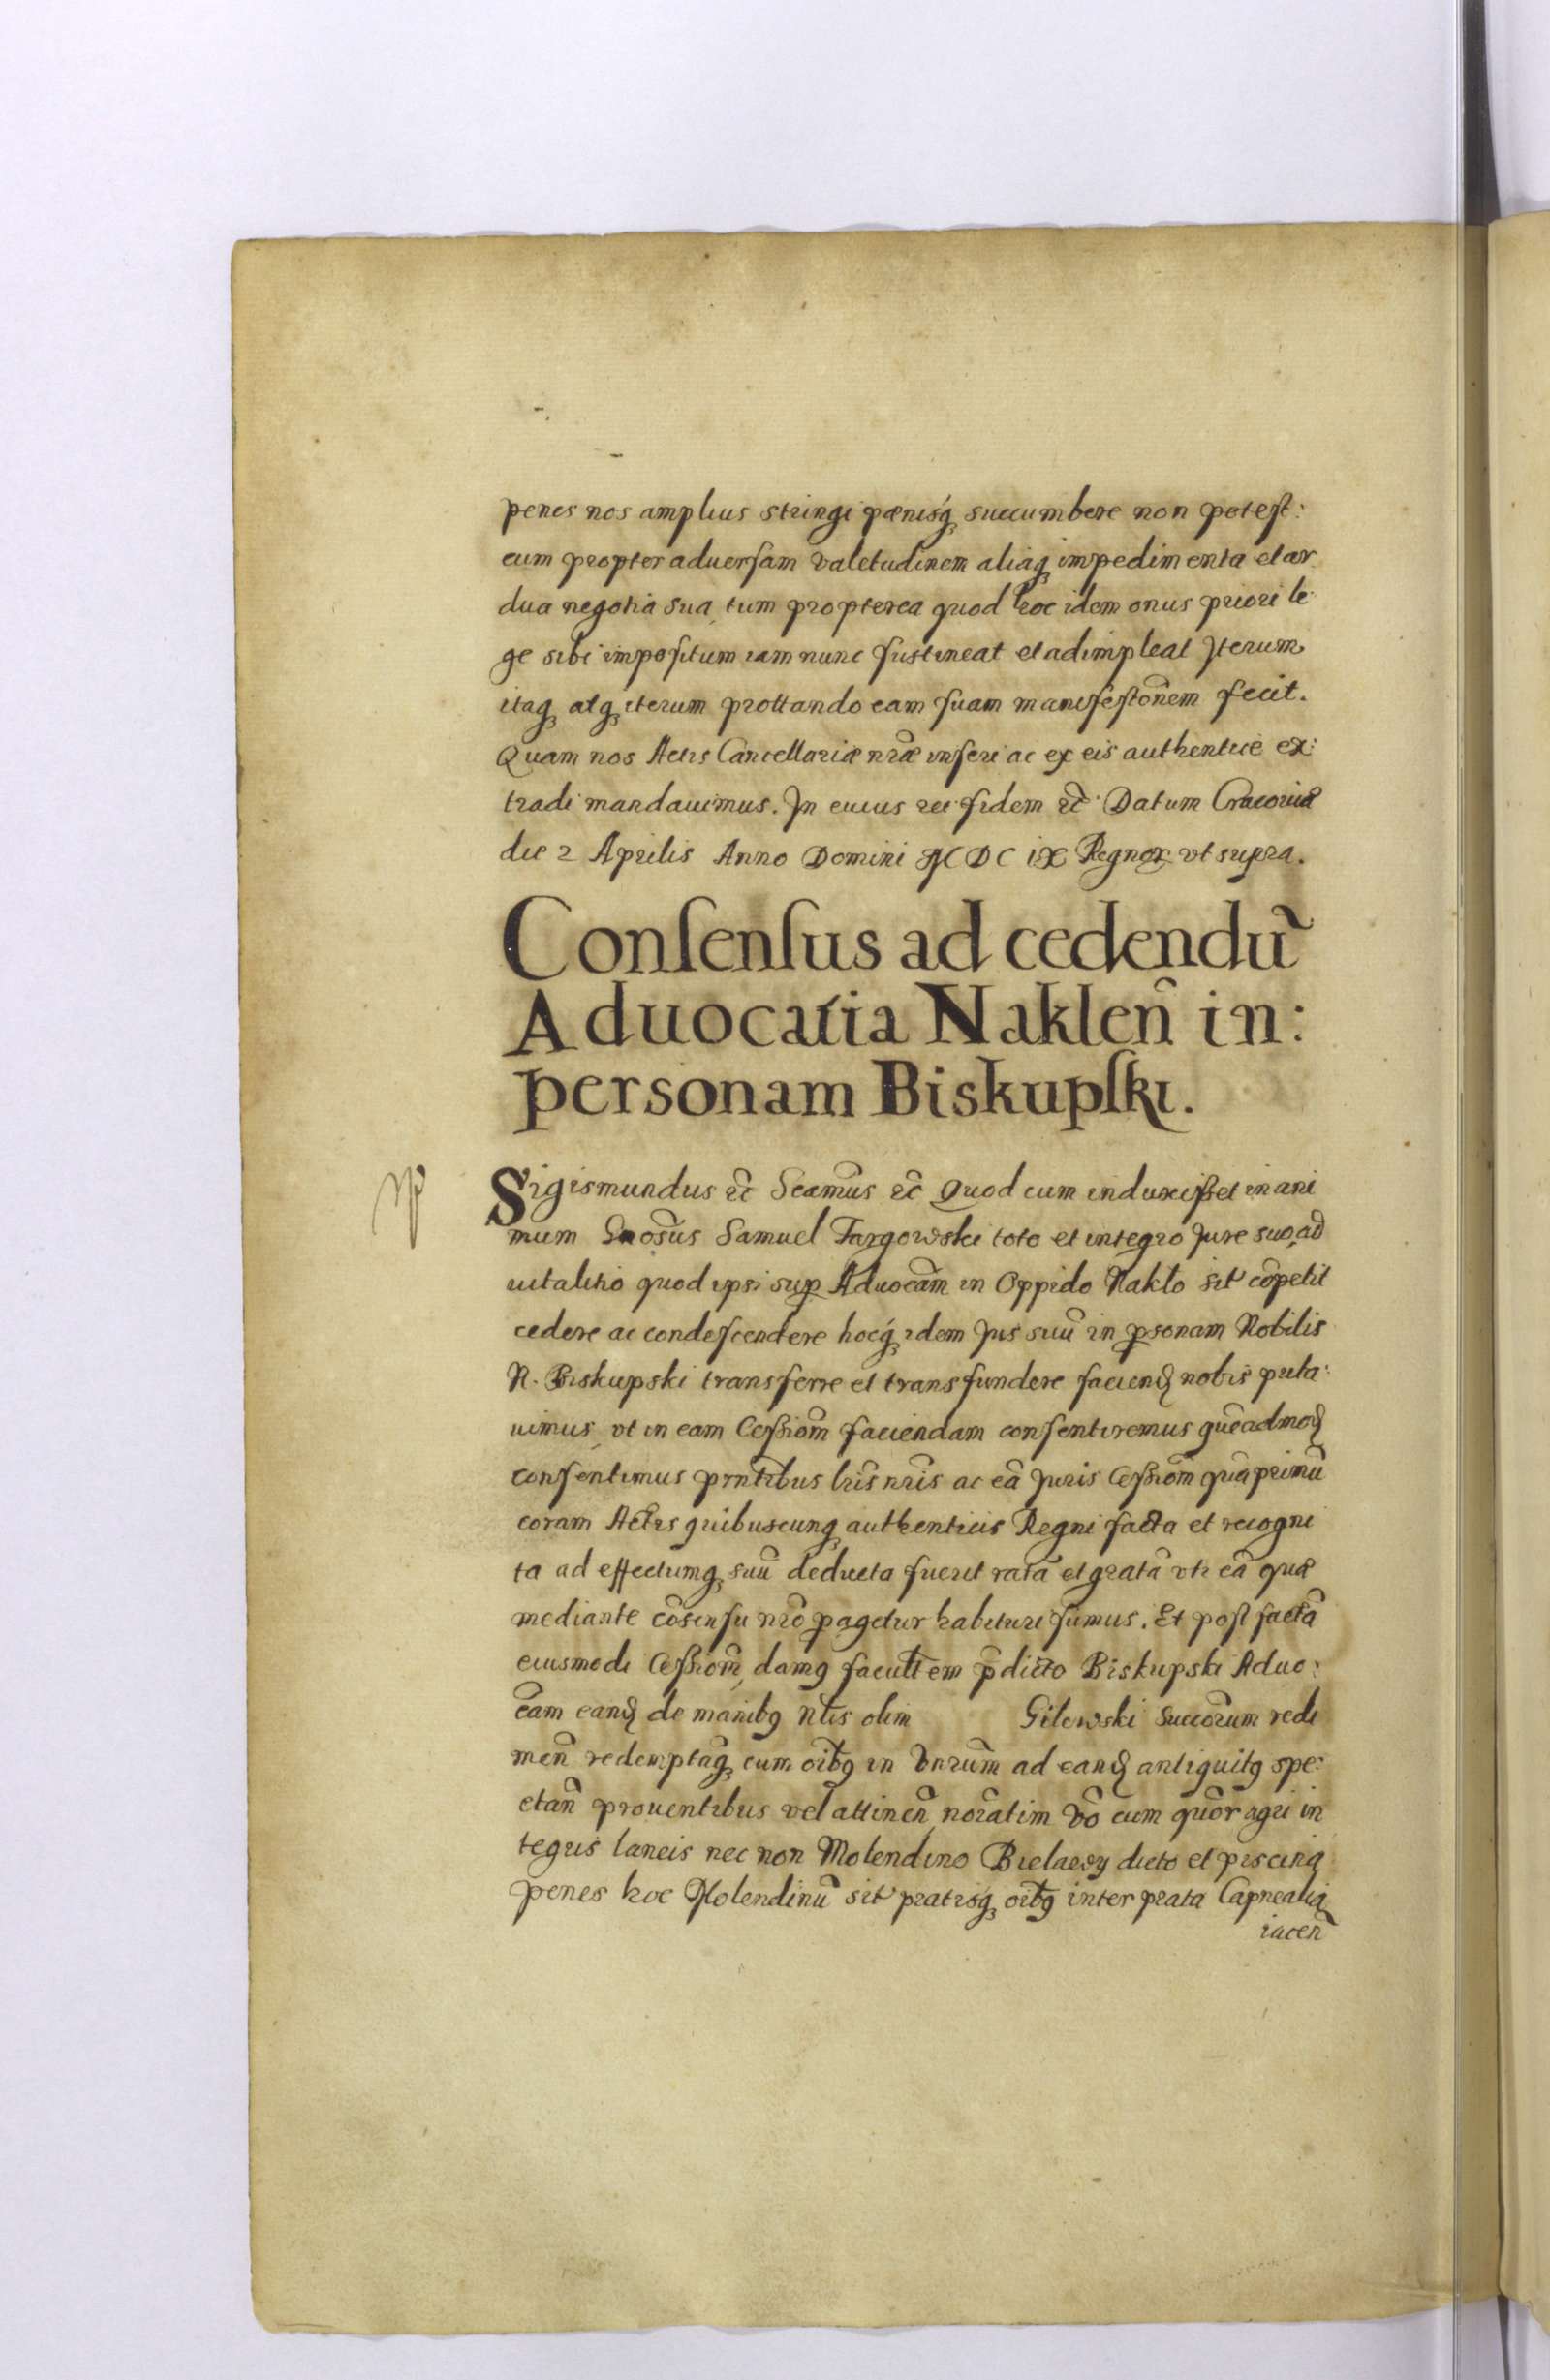 penes nos amplius stringi pœnisq́ꝫ succumbere non potest:
cum propter aduersam valetudinem aliaqꝫ impedimenta et ar
dua negotia sua, tum propterea quod hoc idem onus priori le
ge sibi impositum iam nunc sustineat et adimpleat Iterum
itaqꝫ atqꝫ iterum prottando eam suam manifestõnem fecit.
Quam nos Actis Cancellariæ nr̃æ inseri ac ex eis authentice ex:
tradi mandauimus. In cuius rei fidem etc̃. Datum Cracouiæ
die 2 Aprilis Anno Domini MDC IX Regnoꝝ vt supra.
Consensus ad cedendũ
Aduocatia Naklen̄ in:
personam Biskupski.
Sigismundus etc̃ Seam̃us etc̃ Quod cum induxisset in ani
mum Gnõsus Samuel Targowski toto et integro Jure suo ad
uitalitio quod ipsi suꝑ Aduocãm in Oppido Nakło sit cõpetit
cedere ac condescendere hocq́ꝫ idem Jus suũ in ꝑsonam Nobilis
N. Biskupski transferre et transfundere faciend nobis puta:
uimus, vt in eam Cessiõm faciendam consentiremus quẽadmod
consentimus prñtibus lr̃is nr̃is ac eã Juris Cessiõm quãprimũ
coram Actis quibuscunqꝫ authenticis Regni facta et recogni
ta ad effectumqꝫ suũ deducta fuerit ratã et gratã vti eã quæ
mediante cõsensu nr̃o ꝑagetur habituri sumus. Et post factã
eiusmodi Cessiõm, damꝰ facultt̃em p̃dicto Biskupski Aduo:
cãm eand de manibꝰ Nt̃is olim Gilewski Succõrum redi
men̄ redemptãqꝫ cum oĩbꝰ in Vnr̃um ad eand antiquitꝰ spe:
ctan̄ prouentibus vel attinen̄, noĩatim võ cum quor agri in
tegris laneis nec non Molendino Bielawy dicto et piscina
penes hoc Molendinũ sit pratisq́ꝫ oĩbꝰ inter prata Capnealia
iacen̄